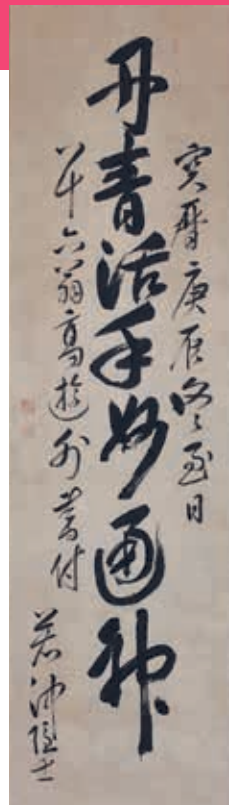 丹青活手妙通神
寶曆庚辰冬至日
八十六翁高遊外書付
若冲隱士